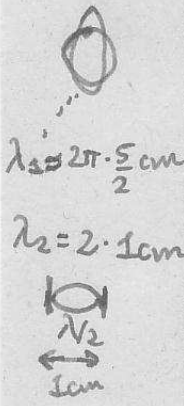 λ₁ = 2π · 5/2 cm
λ₂ = 2 · 1cm
λ/2
1cm